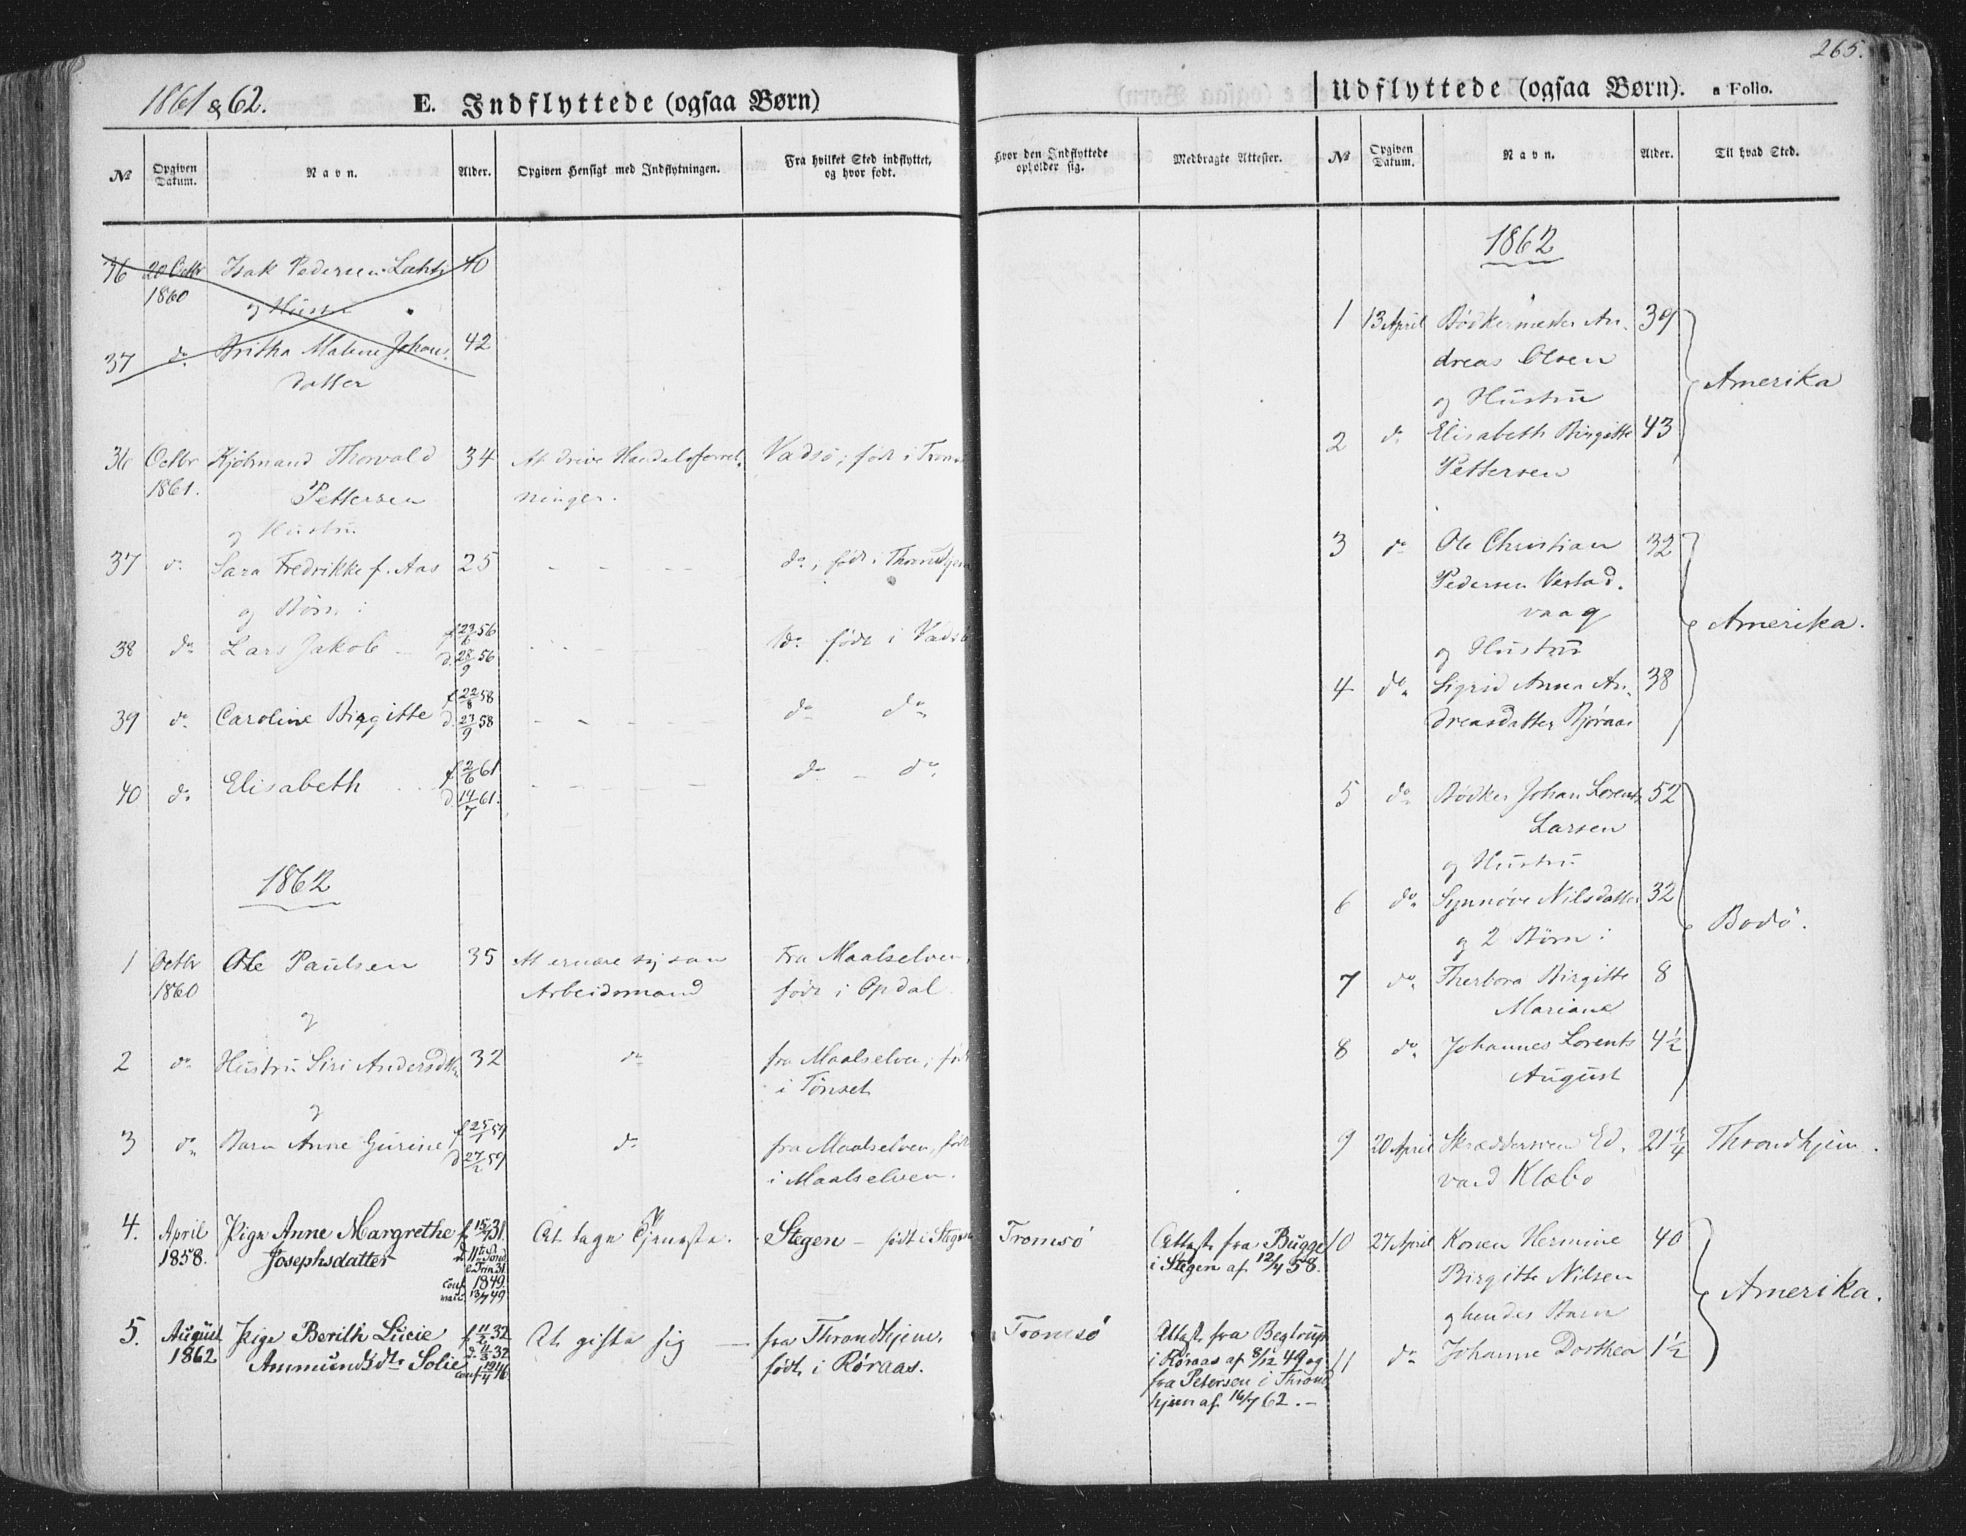 1861 & 62.
E. Indflyttede (ogsaa Børn)
№
Opgiven Datum.
Navn.
Alder.
Opgiven Hensigt med Indflytningen.
Fra hvilket Sted indflyttet, og hvor født.
36 20 Octbr Isak Pedersen 40
1860
og Hustru
37 do Britha Malene Johans 42
datter
36 Octbr Kjøbmand Thorvald 34 At drive Handelsforret Vadsö; født i Troms
1861. Pettersen ninger.
og Hustru
37 do Sara Fredrikke f. Aas 25 do, født i Throndhjem
og Børn:
38 do Lars Jakob f 23/6 56 do født i Vadsö
d. 28/9 56
39 do Caroline Birgitte f 22/8 58 do do
d. 23/9 58
40 do Elisabeth f 2/6 61 do - do
d 14/7 61.
1862
1 Octbr Ole Paulsen 35 At ernære sig som Fra Maalselven,
1860 Arbeidsmand født i Opdal
og
2 do Hustru Siri Andersdtr 32 do fra Maalselven; født
i Tönset
og
3 do Barn Anne Gurine f 25/1 59 do fra Maalselven, født
d 27/2 59 i Maalselven.
4. April Pige Anne Margrethe f 15/7 31. At tage Tjeneste. Stegen - født i Stegen
1858. Josephsdatter d. 11te Sönd
e. Trin 31
conf. 1849.
vacc. 13/7 49
5. August Pige Berith Lucie f 11/2 32 At gifte sig - fra Throndhjem,
1862 Ammundsdtr Solie d. 11/3 32 født i Røraas.
conf
265.
Udflyttede (ogsaa Børn). a Folio.
Hvor den Indflyttede opholder sig.
Medbragte Attester.
№
Opgiven Datum.
Navn.
Alder.
Til hvad Sted.
1862
1 13 April Bödkermester An- 39
dreas Olsen
og Hustru Amerika
2 do Elisabeth Birgitte 43
Pettersen
3 do Ole Christian 32
Pedersen Vestad-
vaag Amerika.
og Hustru
4 do Sigrid Anna An- 38
dreasdatter Björaas
5 do Bödker Johan Lorents 52
Larsen
og Hustru
6 do Synnöve Nilsdatter 32
og 2 Børn: Bodö.
7 do Therbora Birgitte 8
Mariane
8 do Johannes Lorents 4½
August
9 20 April Skræddersven Ed- 21¾ Throndhjem.
vard Klæbo
Tromsö Attest fra Bugge 10 27 April Konen Hermine 40
i Stegen af 12/4 58. Birgitte Nilsen
og hendes Barn Amerika.
Tromsö Attest fra Begtrup 11 do Johanne Dorthea 1½
i Røraas af 8/12 49 og
fra Petersen i Thrond
hjem af 16/7 62. -